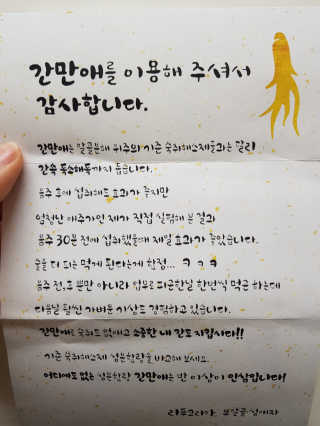 간만애를 이용해 주셔서
감사합니다.
간만애는 알콜분해 위주의 기존 숙취해소제들과는 달리
간속 독소해독까지 돕습니다.
음주 후에 섭취해도 효과가 좋지만
엄청난 애주가인 제가 직접 실험해 본 결과
음주 30분 전에 섭취했을때 제일 효과가 좋았습니다.
술을 더 먹게 된다는게 함정... ㅋㅋㅋ
음주 전,후 뿐만 아니라 업무로 피곤한날 한번씩 먹곤 하는데
다음날 훨씬 가벼운 기상도 경험하고 있습니다.
간만애로 숙취도 없애고 소중한 내 간도 지킵시다!!
기존 숙취해소제 성분함량을 비교해 보세요.
어디에도 없는 성분함량 간만애는 반 이상이 인삼입니다!